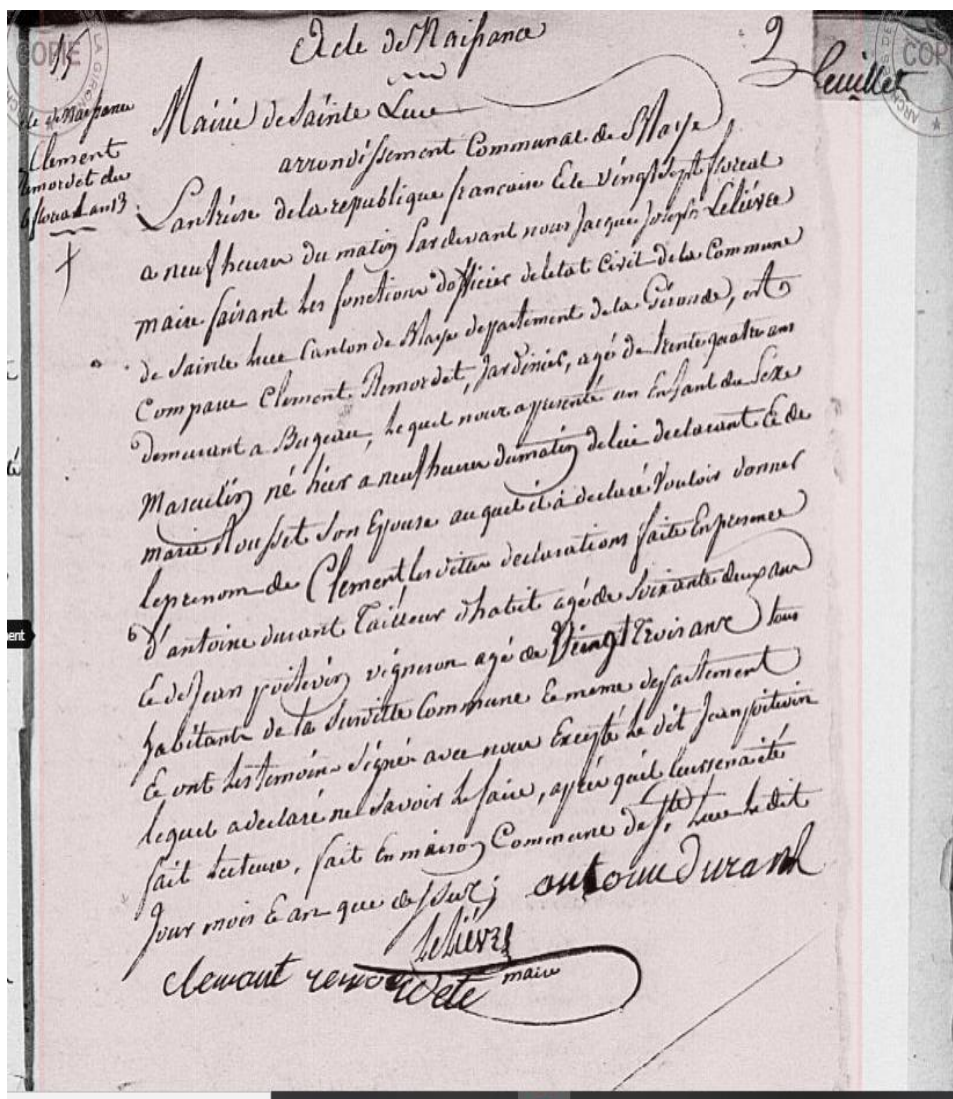 COPIE
LA GIRONDE
ARCH
COPI
ARCHIVES DE
Acte de Naissance
2
feuillet
15
Acte de Naissance
Clement
Remordet du
6 floreal an 13
Mairie de Sainte Luce
arrondissement Communal de Blaye
L'an treize de la republique francaise & le vingt sept floreal
a neuf heures du matin Pardevant nous Jacques Joseph Lelièvre
maire faisant les fonctions d'officier de l'etat Civil de la Commune
de Sainte Luce Canton de Blaye departement de la Gironde, est
Comparu Clement Remordet, Jardinier, agé de trente quatre ans
demeurant a Bugeau, lequel nous a presenté un Enfant du Sexe
Masculin né hier a neuf heures du matin de lui declarant & de
marie Rousset Son Epouse auquel il a declaré Vouloir donner
le prenom de Clement, les dittes declarations faite En presence
d'antoine durant Tailleur d'habit agé de Soixante deux ans
& de Jean poitevin vigneron agé de Vingt trois ans tous
habitants de la Susditte Commune & meme departement
& ont les temoins Signé avec nous Excepté le dit Jean poitevin
lequel a declaré ne Savoir le faire, après qu'il leur en a été
fait lecture. fait En maison Commune de Ste Luce le dit
Jour mois & an que dessus;
antoine durand
Lelièvre
maire
clemant remordete
ent